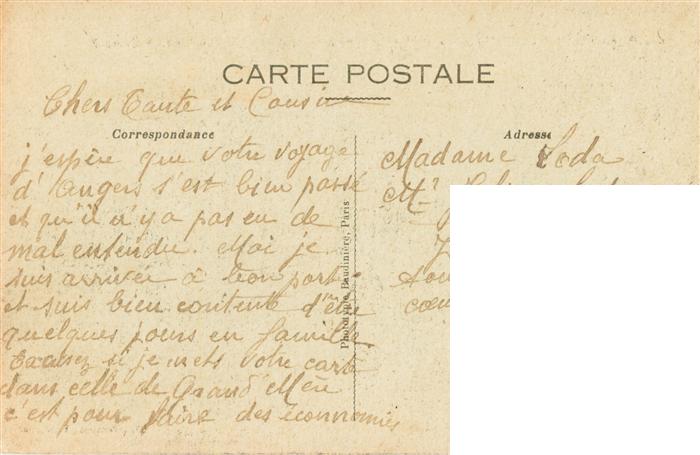 CARTE POSTALE
Chers Tante et Cousin
Correspondance
j'espère que votre voyage
d'Angers s'est bien passé
et qu'il n'y a pas eu de
mal entendu. Moi je
suis arrivée à bon port
et suis bien contente d'être
quelques jours en famille
Excusez si je mets votre carte
dans celle de Grand Mère
c'est pour faire des économies
Phototypie Baudinière, Paris
Adresse
Madame Soda
Mr